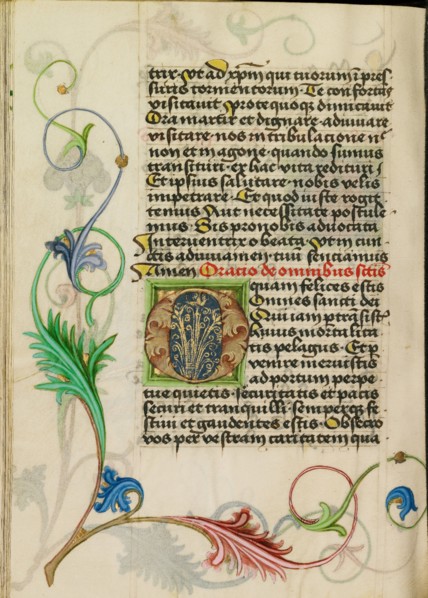 trix. Vt ad xp̄m qui tuorum ī pres
suris tormentorum. Te confortās
visitauit Pro te quoq̄ dimicauit
Ora martir et dignare adiuuare
visitare nos in tribulacione nr̄
non et in agone quando sumus
transituri ex hac vita redituri
Et ipsius salutare nobis velis
impetrare Et quod iuste rogit
tenuis Aut necessitate postule
mus Sis pro nobis aduocata
Interuentrix o beata Vt in cun
ctis adiuuamen tuū senciamus
Amen Oracio de omnibus sctis
O quam felices estis
omnes sancti dei
Qui iam ꝑtrāsistis
huius mortalita
tis pelagus Et ꝑ
venire meruistis
ad portum perpe
tue quietis securitatis et pacis
securi et tranquilli semperq̄ fe
stiui et gaudentes estis Obsecro
vos per vestram caritatem qua